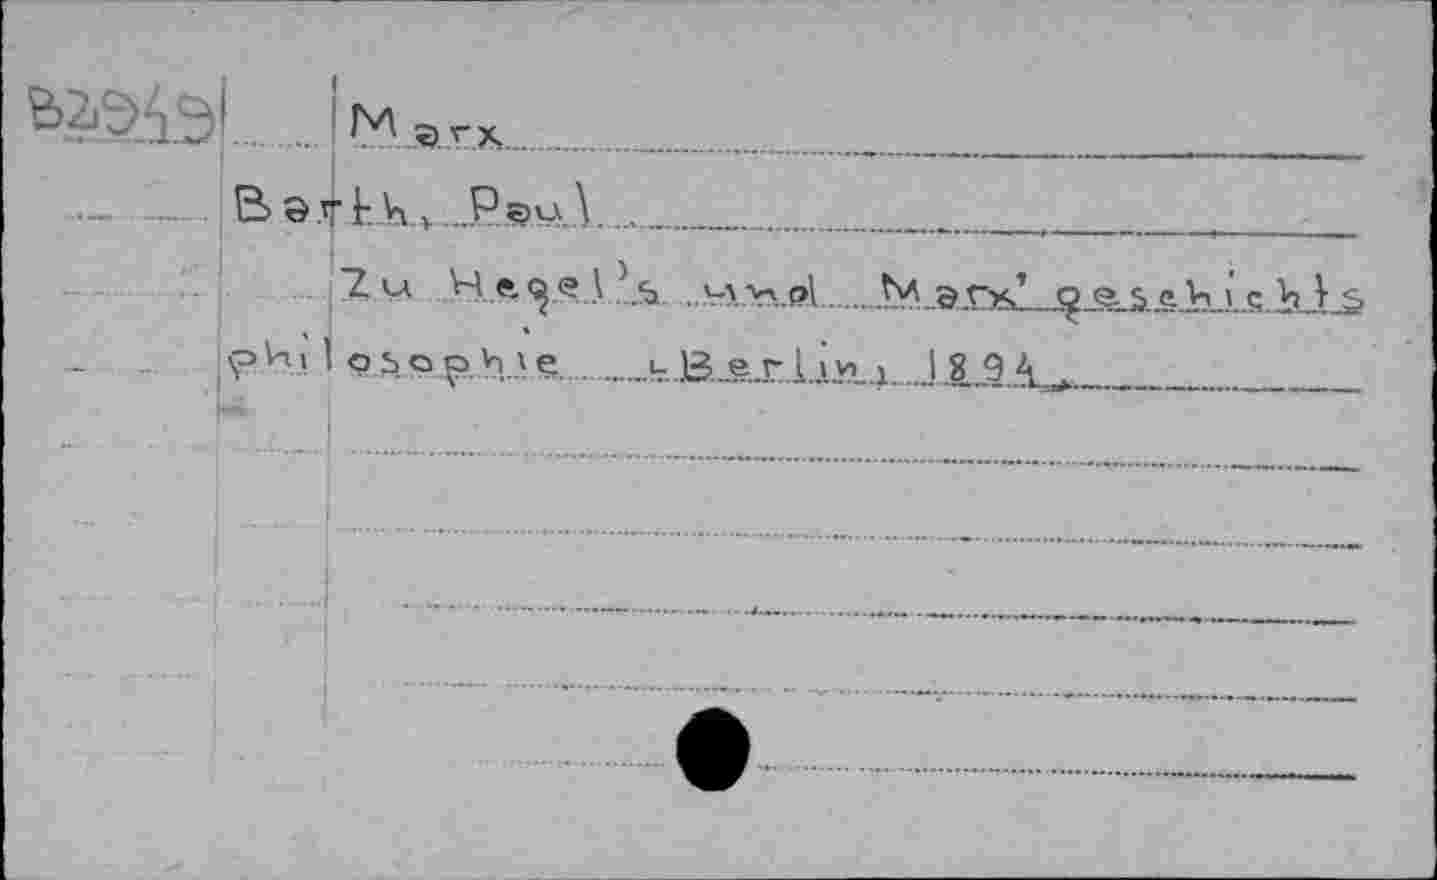 B2949 Marx
Barth, Paul.
Zu Hegel's und Marx' geschichts
philosophie Berlin, 1894.